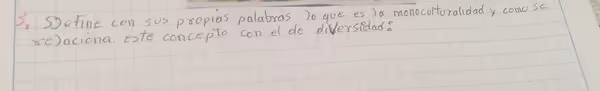 5. Define con sus propias palabras lo que es la monoculturalidad y como se
relaciona este concepto con el de diversidad: